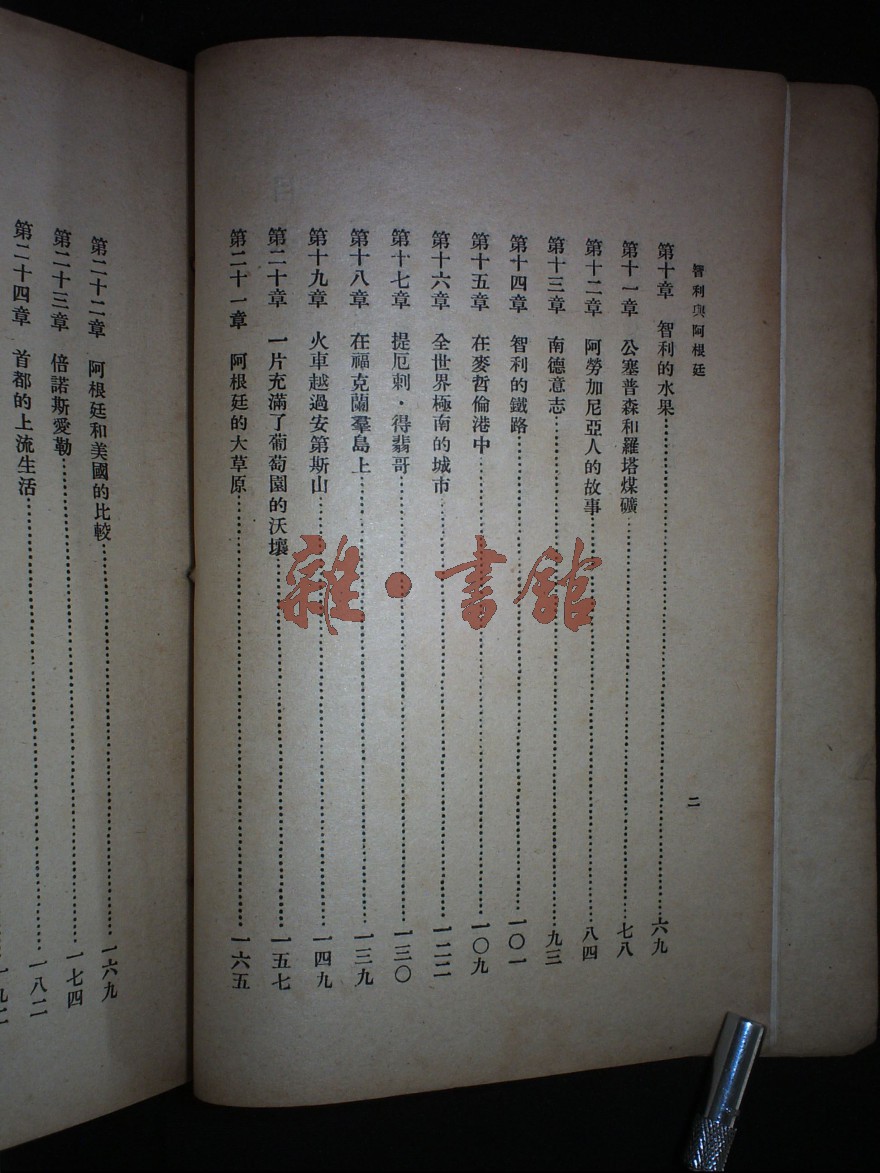 智利與阿根廷
二
第十章 智利的水果……六九
第十一章 公塞普森和羅塔煤礦……七八
第十二章 阿勞加尼亞人的故事……八四
第十三章 南德意志……九三
第十四章 智利的鐵路……一〇一
第十五章 在麥哲倫港中……一〇九
第十六章 全世界極南的城市……一二二
第十七章 提厄剌·得翡哥……一三〇
第十八章 在福克蘭羣島上……一三九
第十九章 火車越過安第斯山……一四九
第二十章 一片充滿了葡萄園的沃壤……一五七
第二十一章 阿根廷的大草原……一六五
第二十二章 阿根廷和美國的比較……一六九
第二十三章 倍諾斯愛勒……一七四
第二十四章 首都的上流生活……一八二
雜·書館